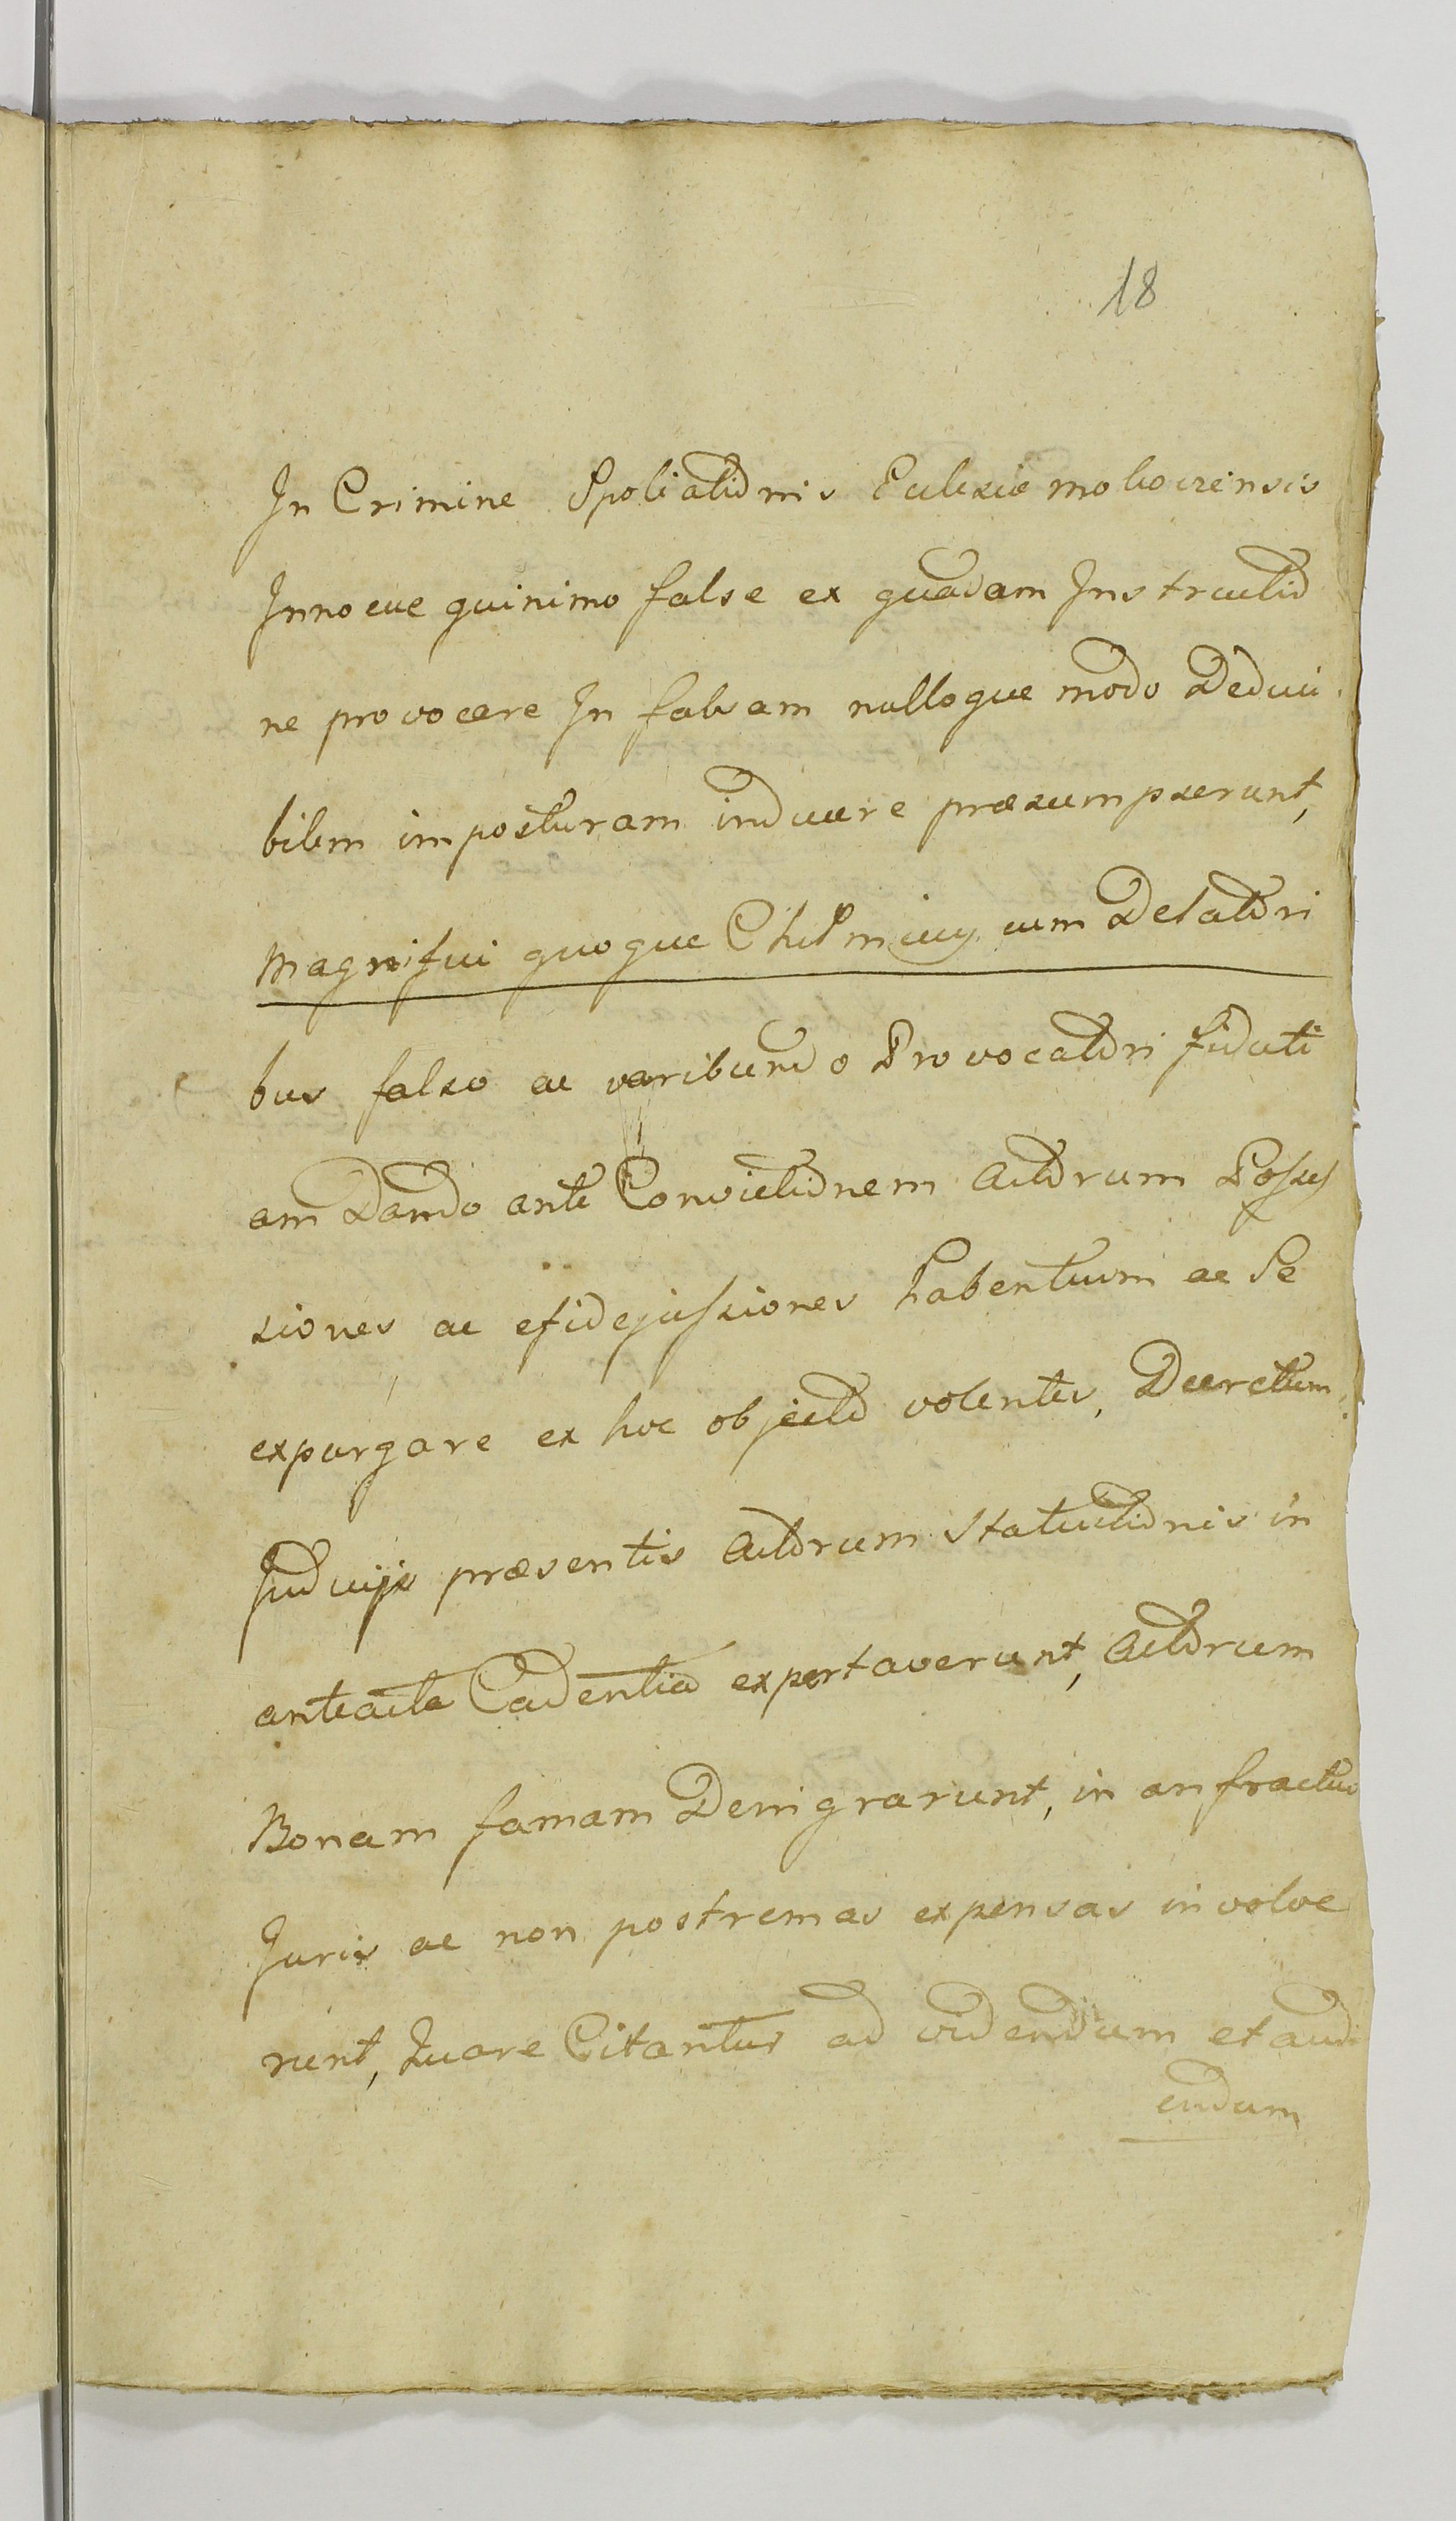 18
In Crimine Spoliationis Ecclesiæ
Innocue quinimo false ex quadam Instructio
ne provocare In falsam nulloque modo Deduci
bilem imposturam inducere præsumpserunt,
Magnifici quoque cum Delatori
bus falso ac Provocatori fiduti
am Dando ante Convictionem Actorum Posses
siones ac efidejussiones habentium ac Se
expurgare ex hoc objecto volentes, Decretum
Judicijs præsentis Actorum Statuitionis in
anteacta Cadentia exportaverunt, Actorum
Bonam famam Denigrarunt, in anfractus
Juris ac non postremas expensas involve
runt, Quare Citantur ad videndum et audi
endum